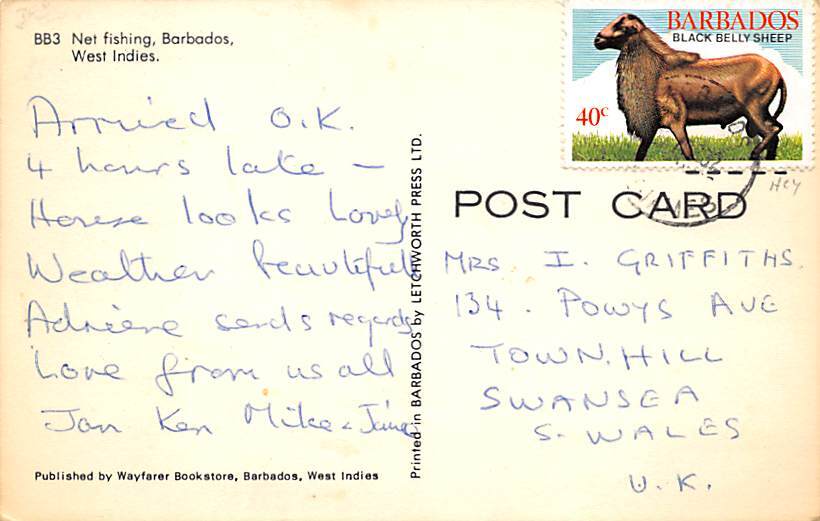 BB3 Net fishing, Barbados,
West Indies.
BARBADOS
BLACK BELLY SHEEP
40c
Arrived O.K.
4 hours late –
House looks lovely
Weather beautiful
Adriene sends regards
Love from us all
Jan Ken Mike &
Published by Wayfarer Bookstore, Barbados, West Indies
Printed in BARBADOS by LETCHWORTH PRESS LTD.
POST CARD
MRS I. GRIFFITHS.
134. POWYS AVE
TOWN.HILL
SWANSEA
S. WALES
U.K.